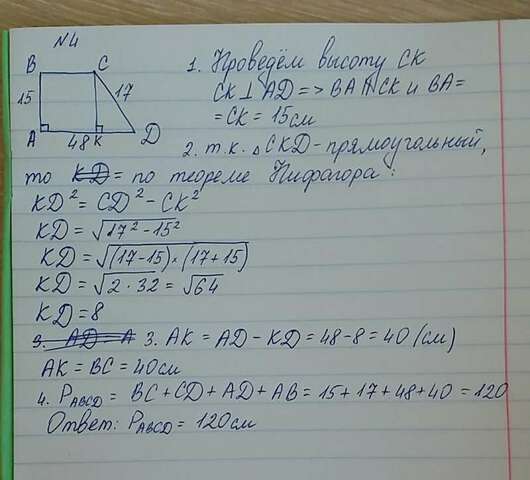 N4
B C
15 17
A 48 K D
1. Проведём высоту CK
CK ⊥ AD => BA || CK и BA =
= CK = 15 см
2. т.к. △CKD - прямоугольный,
то KD = по теореме Пифагора:
KD² = CD² - CK²
KD = √17² - 15²
KD = √(17-15)·(17+15)
KD = √2 · 32 = √64
KD = 8
3. AD = A 3. AK = AD - KD = 48 - 8 = 40 (см)
AK = BC = 40 см
4. PABCD = BC + CD + AD + AB = 15 + 17 + 48 + 40 = 120
Ответ: PABCD = 120 см